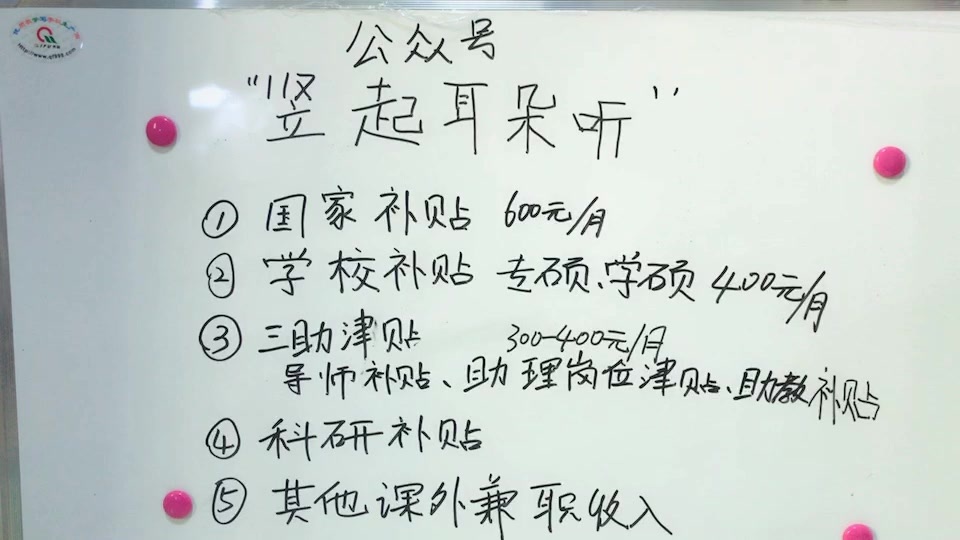 公众号
“竖起耳朵听”
① 国家补贴 600元/月
② 学校补贴 专硕、学硕 400元/月
③ 三助津贴 300-400元/月
导师补贴、助理岗位津贴、助教补贴
④ 科研补贴
⑤ 其他课外兼职收入